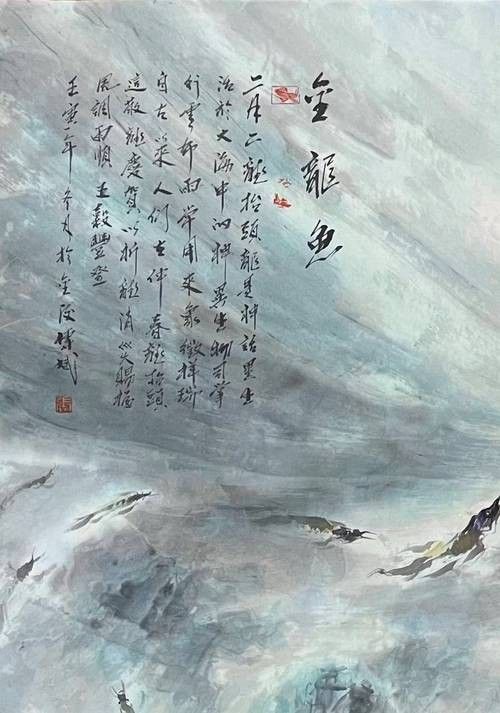 金龍魚
二月二龍抬頭龍是神話里生
活於大海中的神異生物司掌
行雲布雨常用來象徵祥瑞
自古以來人们在仲春龍抬頭
這敬龍慶賀以祈龍消災賜福
風調雨順 五穀豐登
壬寅年 冬月於金陵